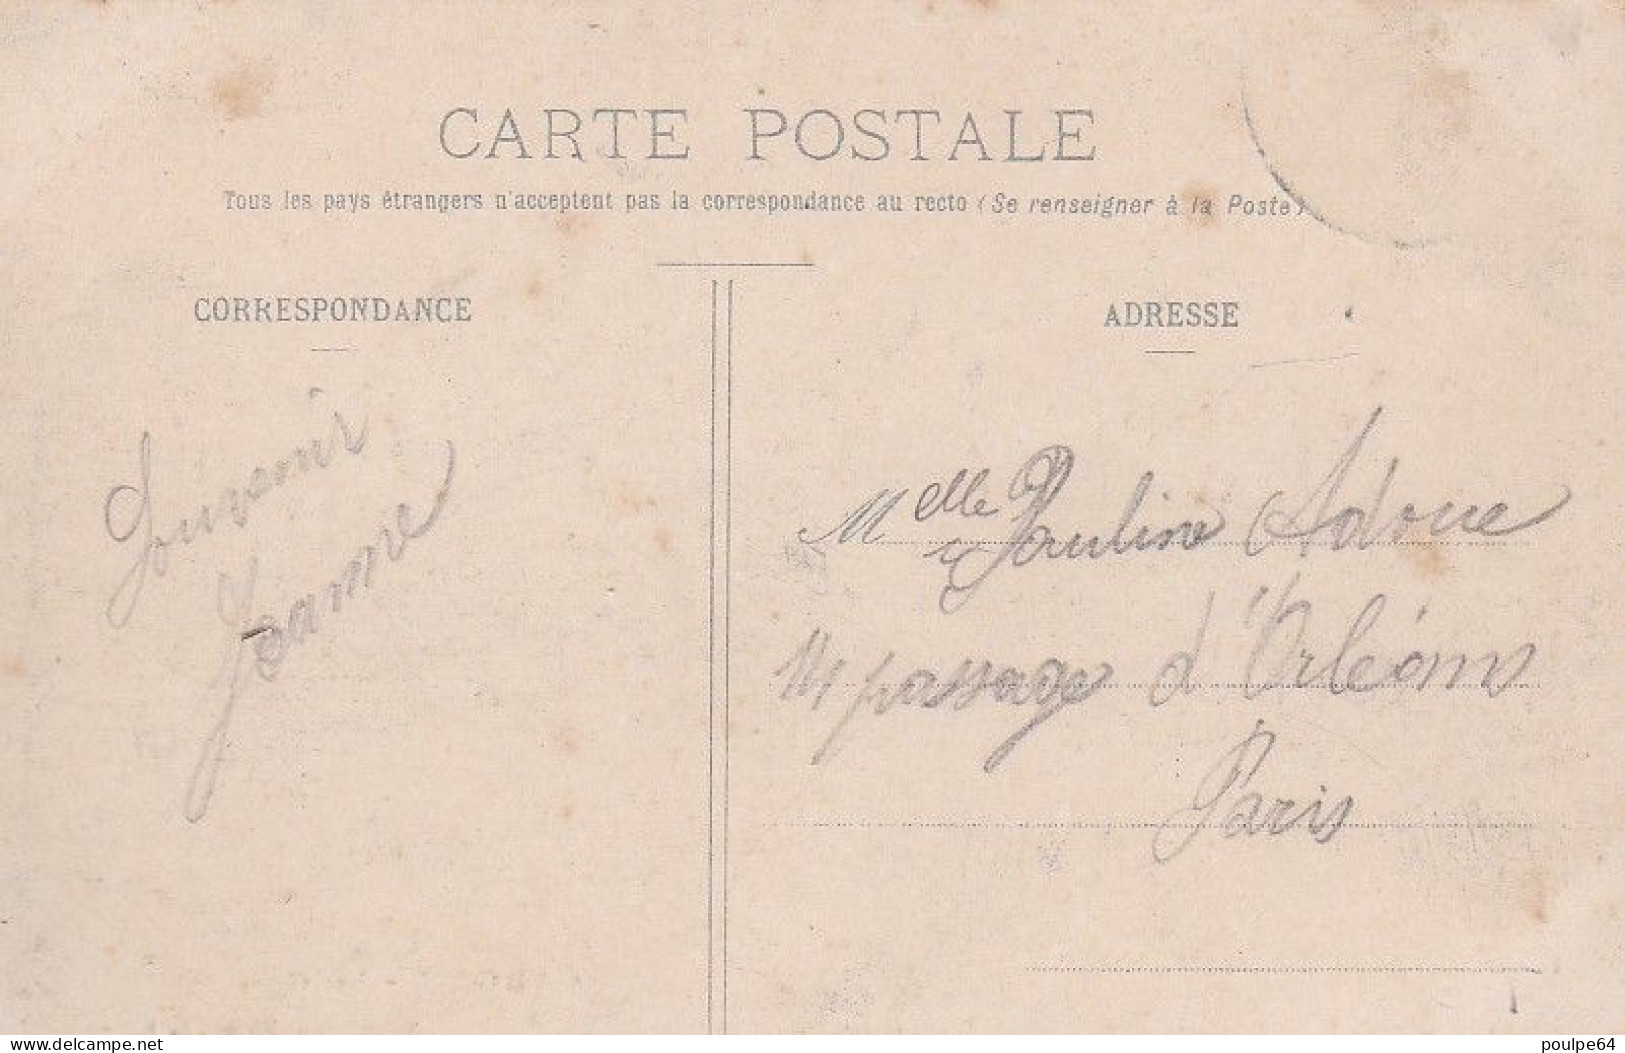 CARTE POSTALE
Tous les pays étrangers n'acceptent pas la correspondance au recto (Se renseigner à la Poste)
CORRESPONDANCE
Souvenir
Jeanne
ADRESSE
Melle Pauline Adoue
passage d'Orléans
Paris
delcampe.net
poulpe64